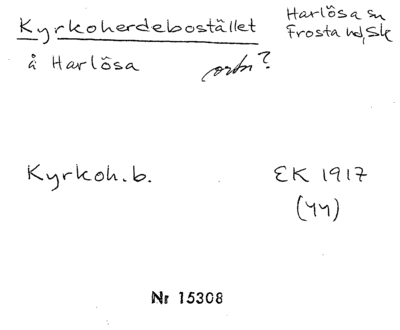 Kyrkoherdebostället
Harlösa sn
Frosta hd, Sk
å Harlösa
ortn?
Kyrkoh.b.
EK 1917
(44)
Nr 15308